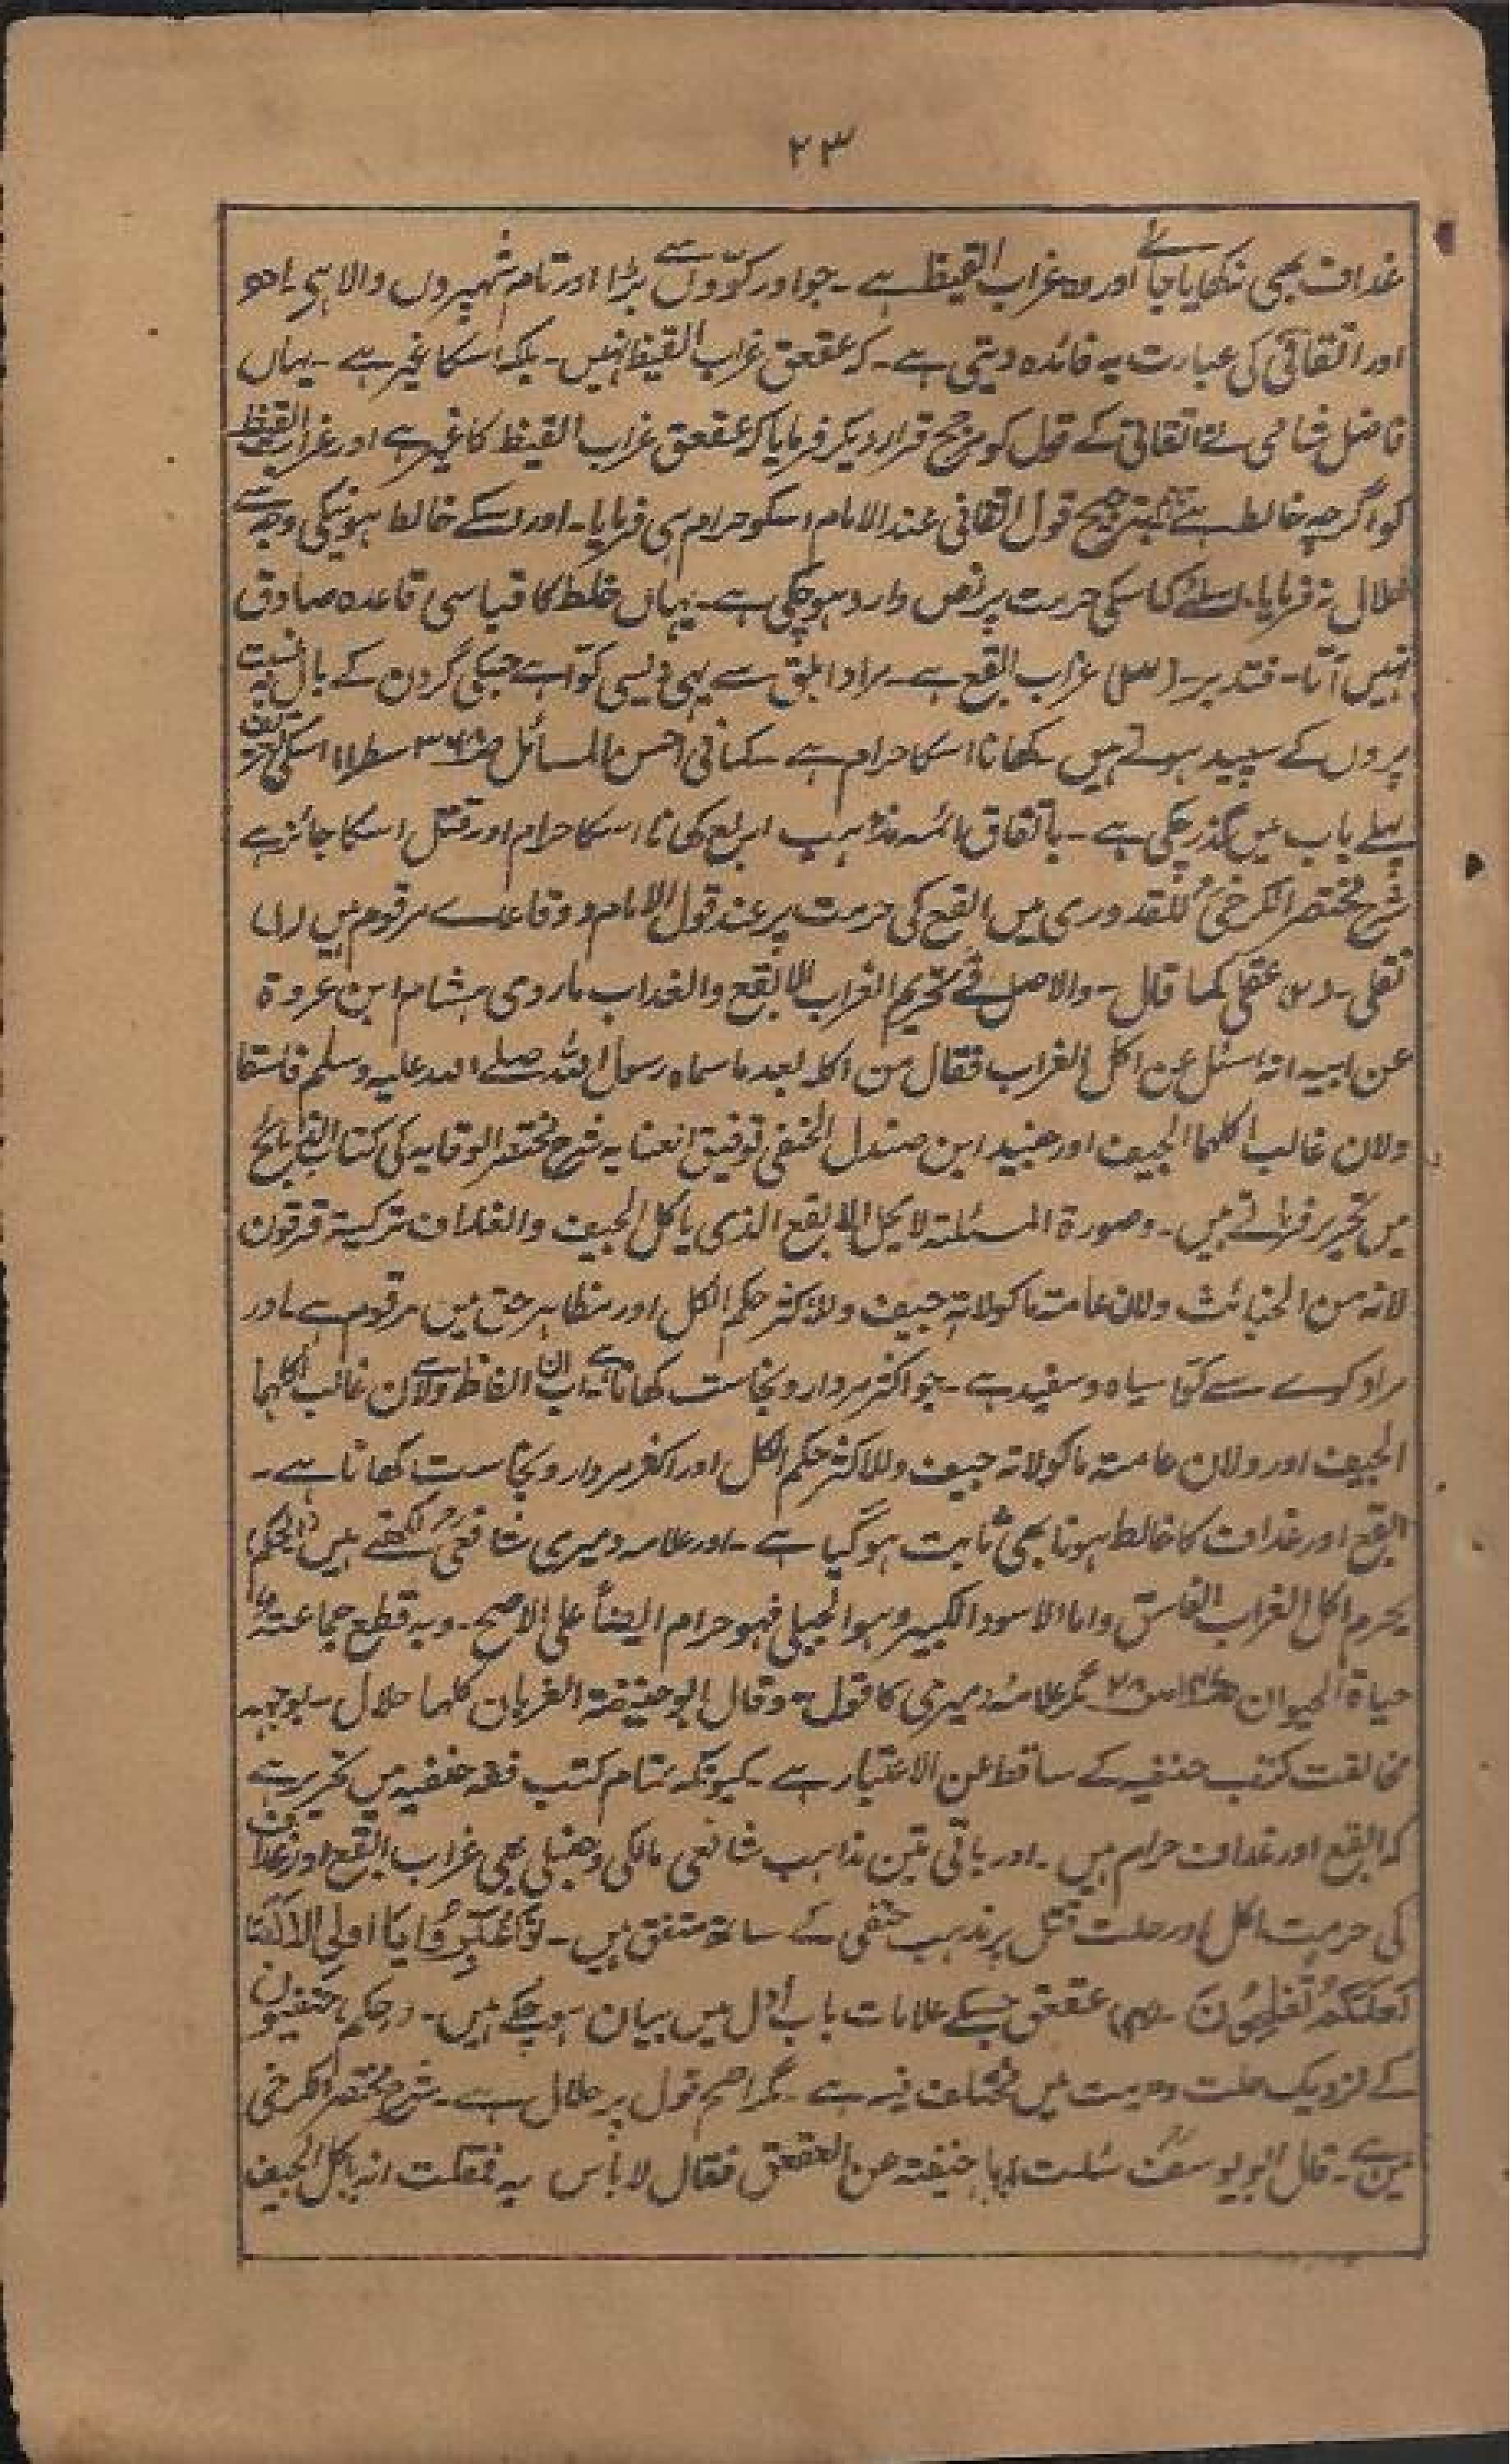 ۲۳
غداف بھی نکھایا جائے اور وہ غراب القیظ ہے ۔ جو اور کوّوں سے بڑا اور تمام شہپروں والا ہی
اور اتقانی کی عبارت یہ فائدہ دیتی ہے ۔ کہ عقعق غراب القیظ نہیں ۔ بلکہ اسکا غیر ہے ۔ یہاں
فاضل شامی نے اتقانی کے قول کو مرجح قرار دیکر فرمایا کہ عقعق غراب القیظ کا غیر ہے اور غراب القیظ
کو اگرچہ خالط ہے بترجیح قول اتقانی عند الامام اسکو حرام ہی فرمایا ۔ اور اسکے خالط ہونیکی وجہ سے
حلال نہ فرمایا ۔ اسلئے کہ اسکی حرمت پر نص وارد ہو چکی ہے ۔ یہاں خلط کا قیاسی قاعدہ صادق
نہیں آتا ۔ فتدبر ۔ (۳) غراب ابقع ہے ۔ مراد ابلق سے یہی دیسی کوّا ہے جسکی گردن کے بال بہ نسبت
پروں کے سپید ہوتے ہیں ۔ کھانا اسکا حرام ہے ۔ کما فی احسن المسائل سطر ۱۱ اسکی
پہلے باب میں گذر چکی ہے ۔ باتفاق ائمہ مذاہب اربع کھانا اسکا حرام اور قتل اسکا جائز ہے
شرح مختصر الکرخی للقدوری میں ابقع کی حرمت پر عند قول الامام دو قاعدے مرقوم ہیں (۱)
نقلی ۔ (۲) عقلی کما قال ۔ والاصل فی تحریم الغراب الابقع والغداف ما روی ہشام ابن عروۃ
عن ابیہ انہ اسئل عن اکل الغراب فقال من اکلہ بعد ما سماہ رسول اللہ صلے اللہ علیہ وسلم فاسقا
ولان غالب اکلہما الجیف اور جنید ابن صندل الحنفی توفیق العنایہ شرح مختصر الوقایہ کی کتاب الذبائح
میں تحریر فرماتے ہیں ۔ وصورۃ المسئلۃ لا یحل الابقع الذی یاکل الجیف والغداف ترکیۃ قرقون
لانہ من الخبائث ولان عامۃ ماکولاتہ جیف وللاکثر حکم الکل اور مظاہر حق میں مرقوم ہے اور
مراد کوے سے کوّا سیاہ وسفید ہے ۔ جو اکثر مردار ونجاست کھاتا ہے ۔ اب ان الفاظ سے ولان غالب اکلہما
الجیف اور ولان عامتہ ماکولاتہ جیف وللاکثر حکم الکل اور اکثر مردار ونجاست کھاتا ہے ۔
ابقع اور غداف کا خالط ہونا بھی ثابت ہو گیا ہے ۔ اور علامہ دمیری شافعیؒ لکھتے ہیں (الحکم)
یحرم اکل الغراب الفاسق واما الاسود الکبیر وہو الجبلی فہو حرام ایضاً علی الاصح ۔ وبہ قطع جماعۃ
حیاۃ الحیوان مگر علامہ دمیری کا قول ۔ وقال ابو حنیفۃ الغربان کلہا حلال ۔ بوجہہ
مخالفت کتب حنفیہ کے ساقط عن الاعتبار ہے ۔ کیونکہ تمام کتب فقہ حنفیہ میں تحریر ہے
کہ ابقع اور غداف حرام ہیں ۔ اور باقی تین مذاہب شافعی مالکی وحنبلی بھی غراب ابقع اور غداف
کی حرمت اکل اور حلت قتل پر مذہب حنفی کے ساتھ متفق ہیں ۔ فَاعْتَبِرُوا یَا اولی الالباب
لَعَلَّكُمْ تُفْلِحُونَ ۔ (۴) عقعق جسکے علامات باب اول میں بیان ہو چکے ہیں ۔ (حکم) حنفیوں
کے نزدیک حلت وحرمت میں مختلف فیہ ہے ۔ مگر اصح قول پر حلال ہے ۔ شرح مختصر الکرخی
میں ہے ۔ قال ابو یوسفؒ سئلت ابا حنیفتہ عن العقعق فقال لا باس بہ فقلت انہ یاکل الجیف